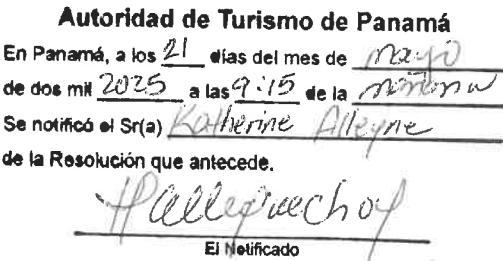 Autoridad de Turismo de Panamá
En Panamá, a los 21 días del mes de mayo
de dos mil 2025 a las 9:15 de la mañana
Se notificó el Sr(a) Katherine Alleyne
de la Resolución que antecede.
El Notificado